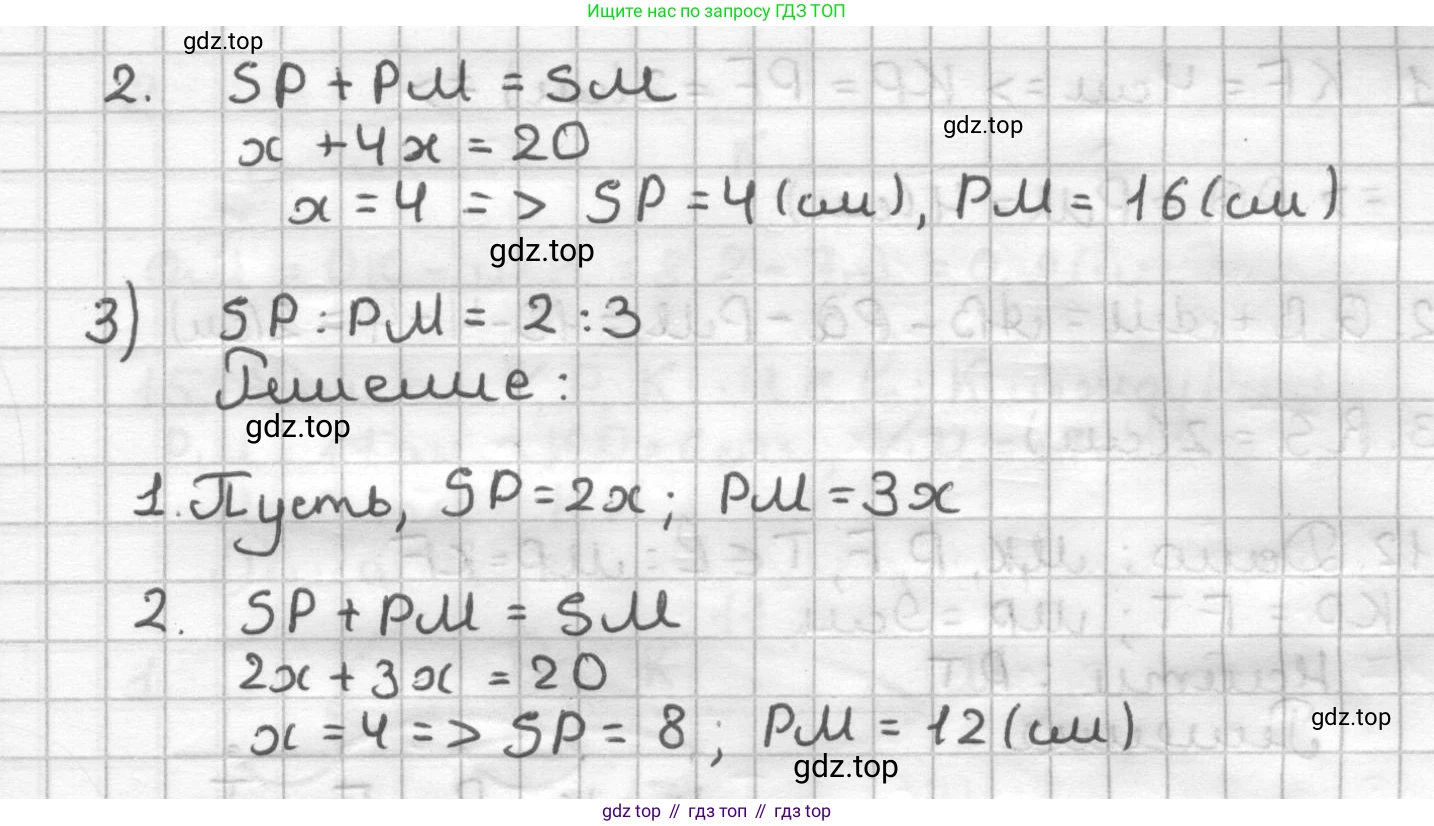 Ищите нас по запросу ГДЗ ТОП
gdz.top
2. SP + PM = SM
gdz.top
x + 4x = 20
x = 4 => SP = 4 (см), PM = 16 (см)
gdz.top
3) SP : PM = 2 : 3
Решение :
gdz.top
1. Пусть, SP = 2x ; PM = 3x
2. SP + PM = SM
2x + 3x = 20
x = 4 => SP = 8 ; PM = 12 (см)
gdz.top
gdz.top
gdz top // гдз топ // gdz top